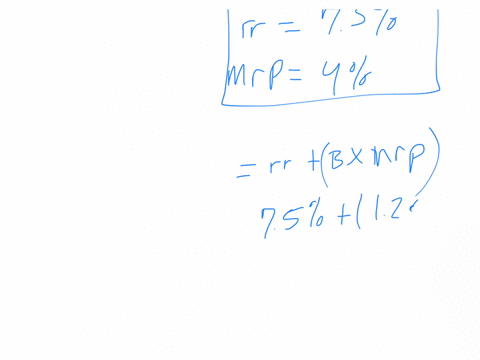 rr = 7.5%
mrp = 4%
= rr + (B x mrp)
7.5% + ( 1.2